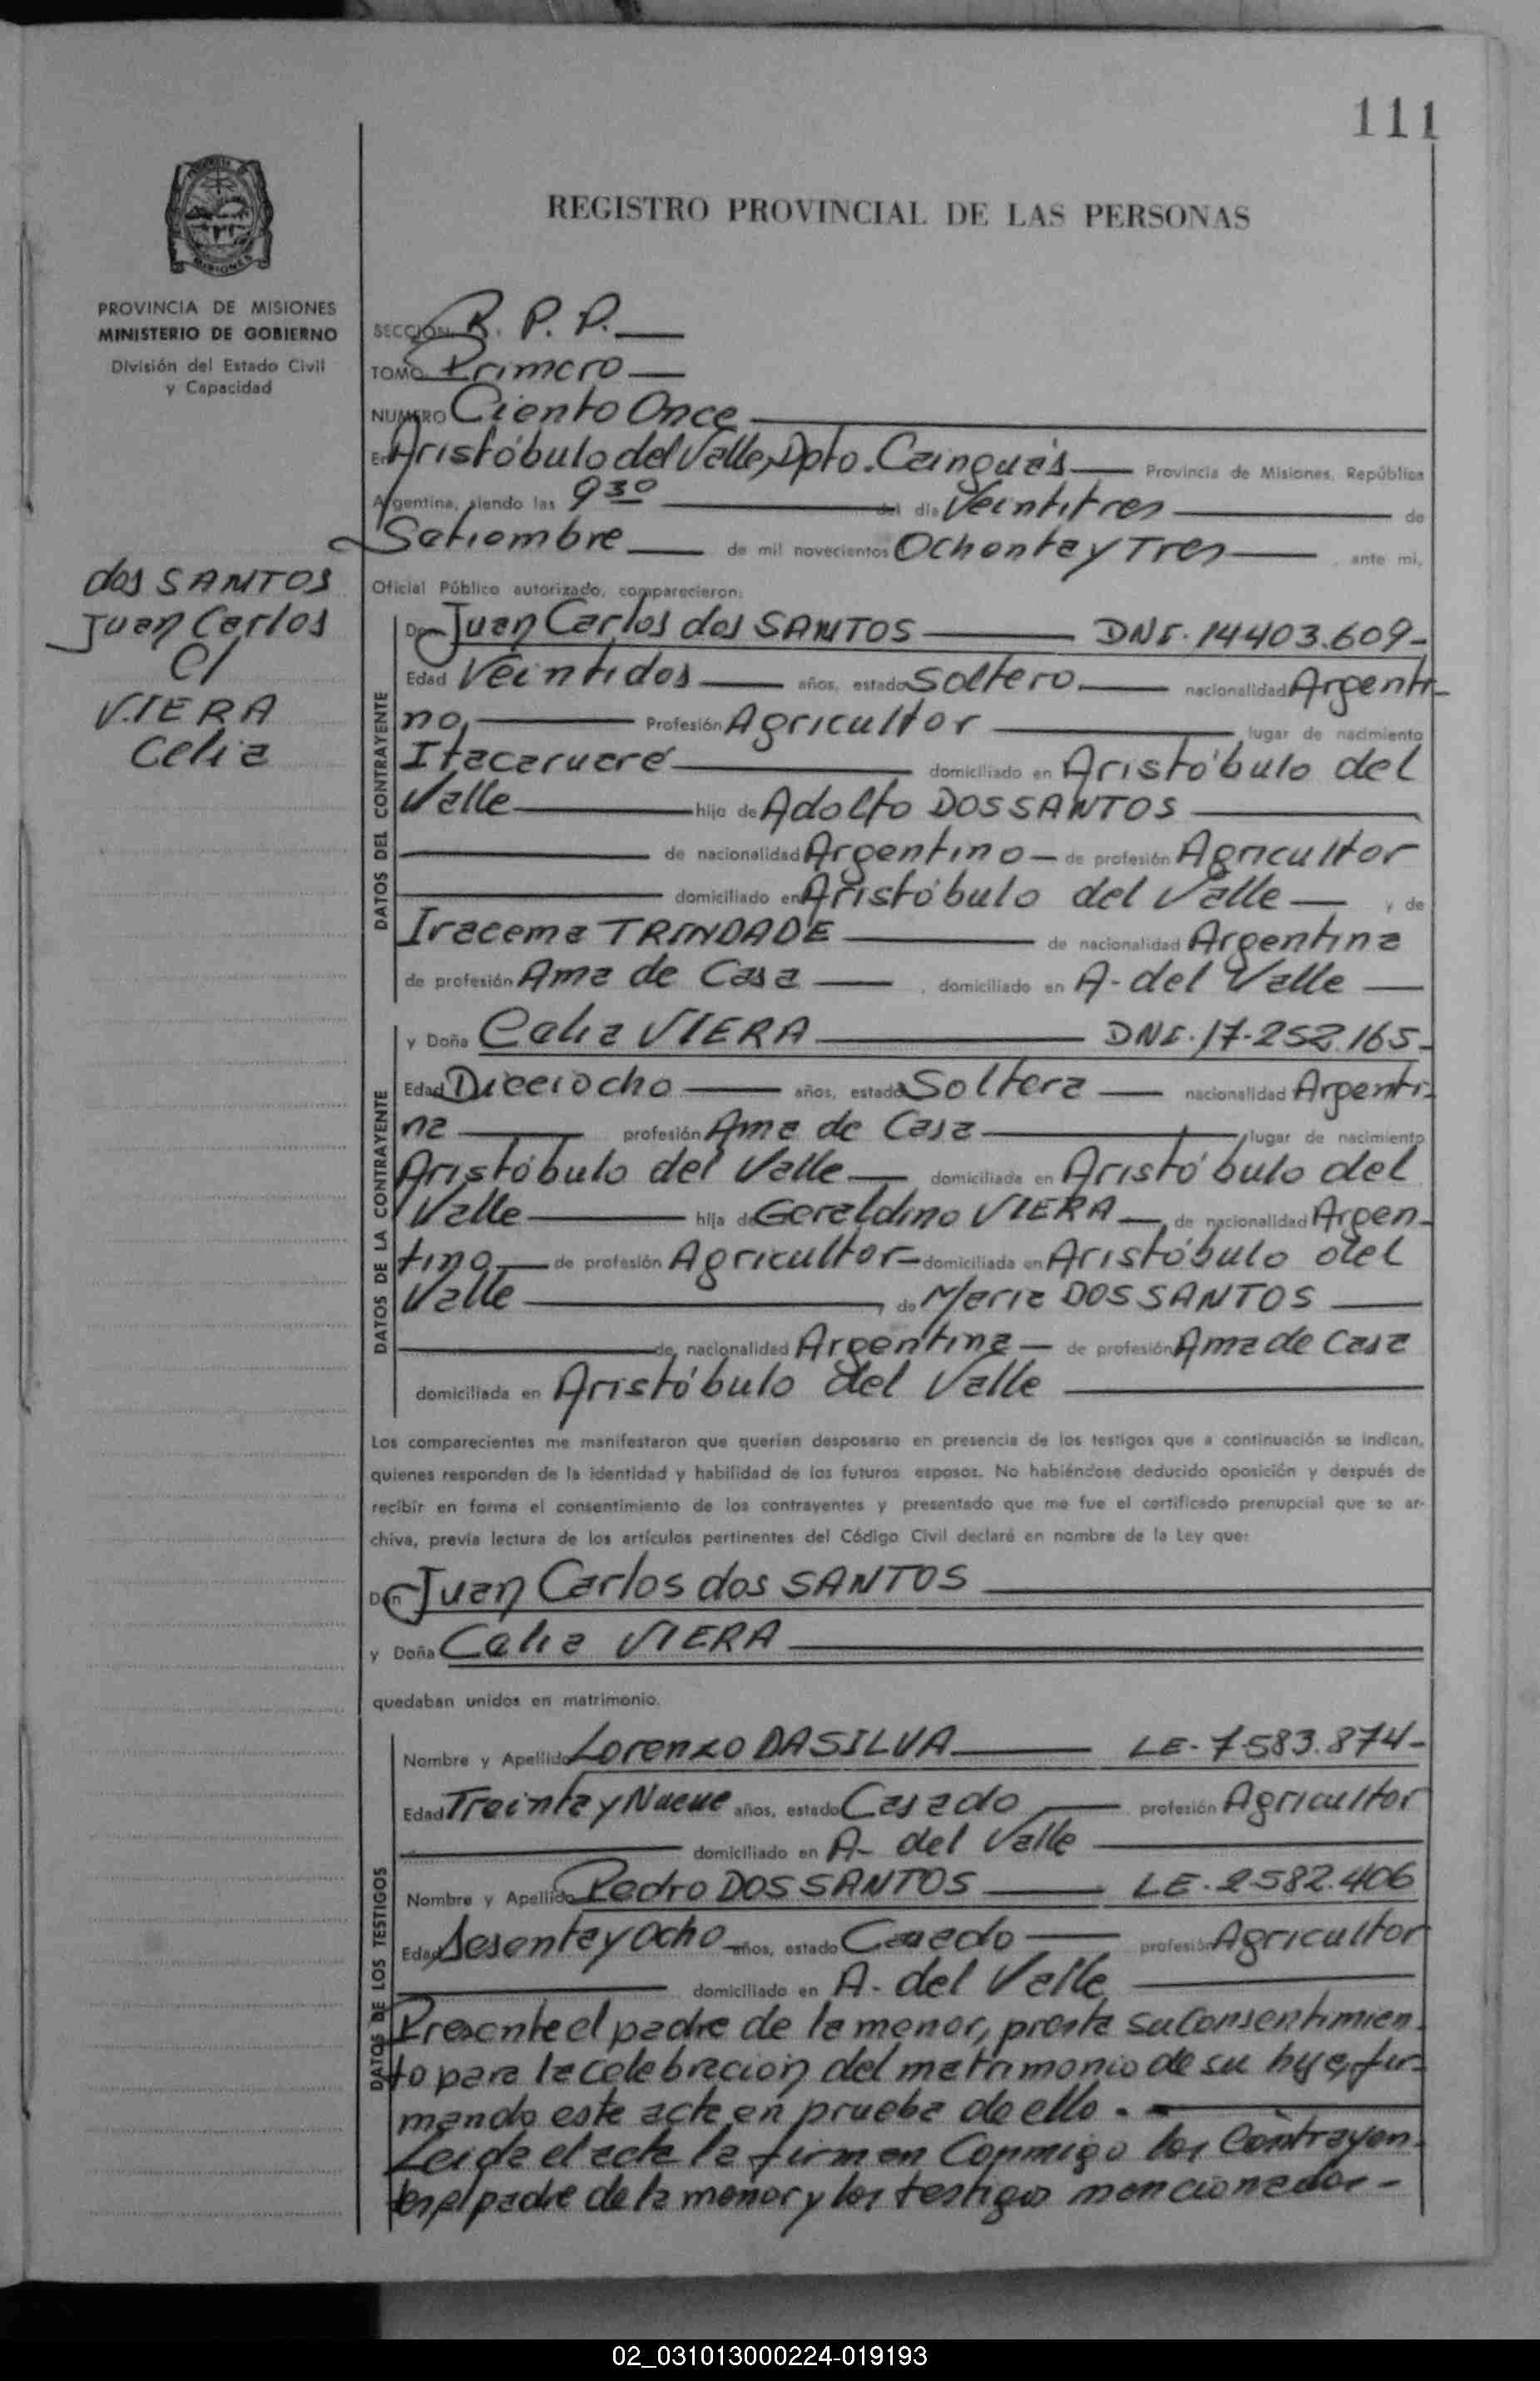 111
REGISTRO PROVINCIAL DE LAS PERSONAS
MISIONES
PROVINCIA DE MISIONES
MINISTERIO DE GOBIERNO
División del Estado Civil
y Capacidad
SECCION R. P. P.
TOMO Primero
NUMERO Ciento Once
En Aristóbulo del Valle, Dpto. Cainguás Provincia de Misiones, República
Argentina, siendo las 9 30 del día Veintitres de
Setiembre de mil novecientos Ochenta y Tres, ante mi,
Oficial Público autorizado, comparecieron:
dos SANTOS
Juan Carlos
c/
VIERA
Celia
DATOS DEL CONTRAYENTE
Don Juan Carlos dos SANTOS DNI. 14403.609-
Edad Veintidos años, estado Soltero nacionalidad Argenti-
no, Profesión Agricultor lugar de nacimiento
Itacaruaré domiciliado en Aristóbulo del
Valle hijo de Adolfo DOS SANTOS
de nacionalidad Argentino de profesión Agricultor
domiciliado en Aristóbulo del Valle y de
Iracema TRINDADE de nacionalidad Argentina
de profesión Ama de Casa, domiciliado en A- del Valle
DATOS DE LA CONTRAYENTE
y Doña Celia VIERA DNI. 17-252.165-
Edad Dieciocho años, estado Soltera nacionalidad Argenti-
na profesión Ama de Casa, lugar de nacimiento
Aristóbulo del Valle domiciliada en Aristóbulo del
Valle hija de Geraldino VIERA, de nacionalidad Argen-
tino de profesión Agricultor domiciliada en Aristóbulo del
Valle, de Maria DOS SANTOS
de nacionalidad Argentina de profesión Ama de Casa
domiciliada en Aristóbulo del Valle
Los comparecientes me manifestaron que querían desposarse en presencia de los testigos que a continuación se indican,
quienes responden de la identidad y habilidad de los futuros esposos. No habiéndose deducido oposición y después de
recibir en forma el consentimiento de los contrayentes y presentado que me fue el certificado prenupcial que se ar-
chiva, previa lectura de los artículos pertinentes del Código Civil declaré en nombre de la Ley que:
Don Juan Carlos dos SANTOS
y Doña Celia VIERA
quedaban unidos en matrimonio.
DATOS DE LOS TESTIGOS
Nombre y Apellido Lorenzo DASILVA LE- 7.583.874-
Edad Treinta y Nueve años, estado Casado profesión Agricultor
domiciliado en A- del Valle
Nombre y Apellido Pedro DOS SANTOS LE. 2582.406
Edad Sesenta y Ocho años, estado Casado profesión Agricultor
domiciliado en A- del Valle
Presente el padre de la menor, presta su Consentimien-
to para la celebración del matrimonio de su hija, fir-
mando este acta en prueba de ello.-
Leida el acta la firman Conmigo los Contrayen-
tes, el padre de la menor y los testigos mencionados-
02_031013000224-019193